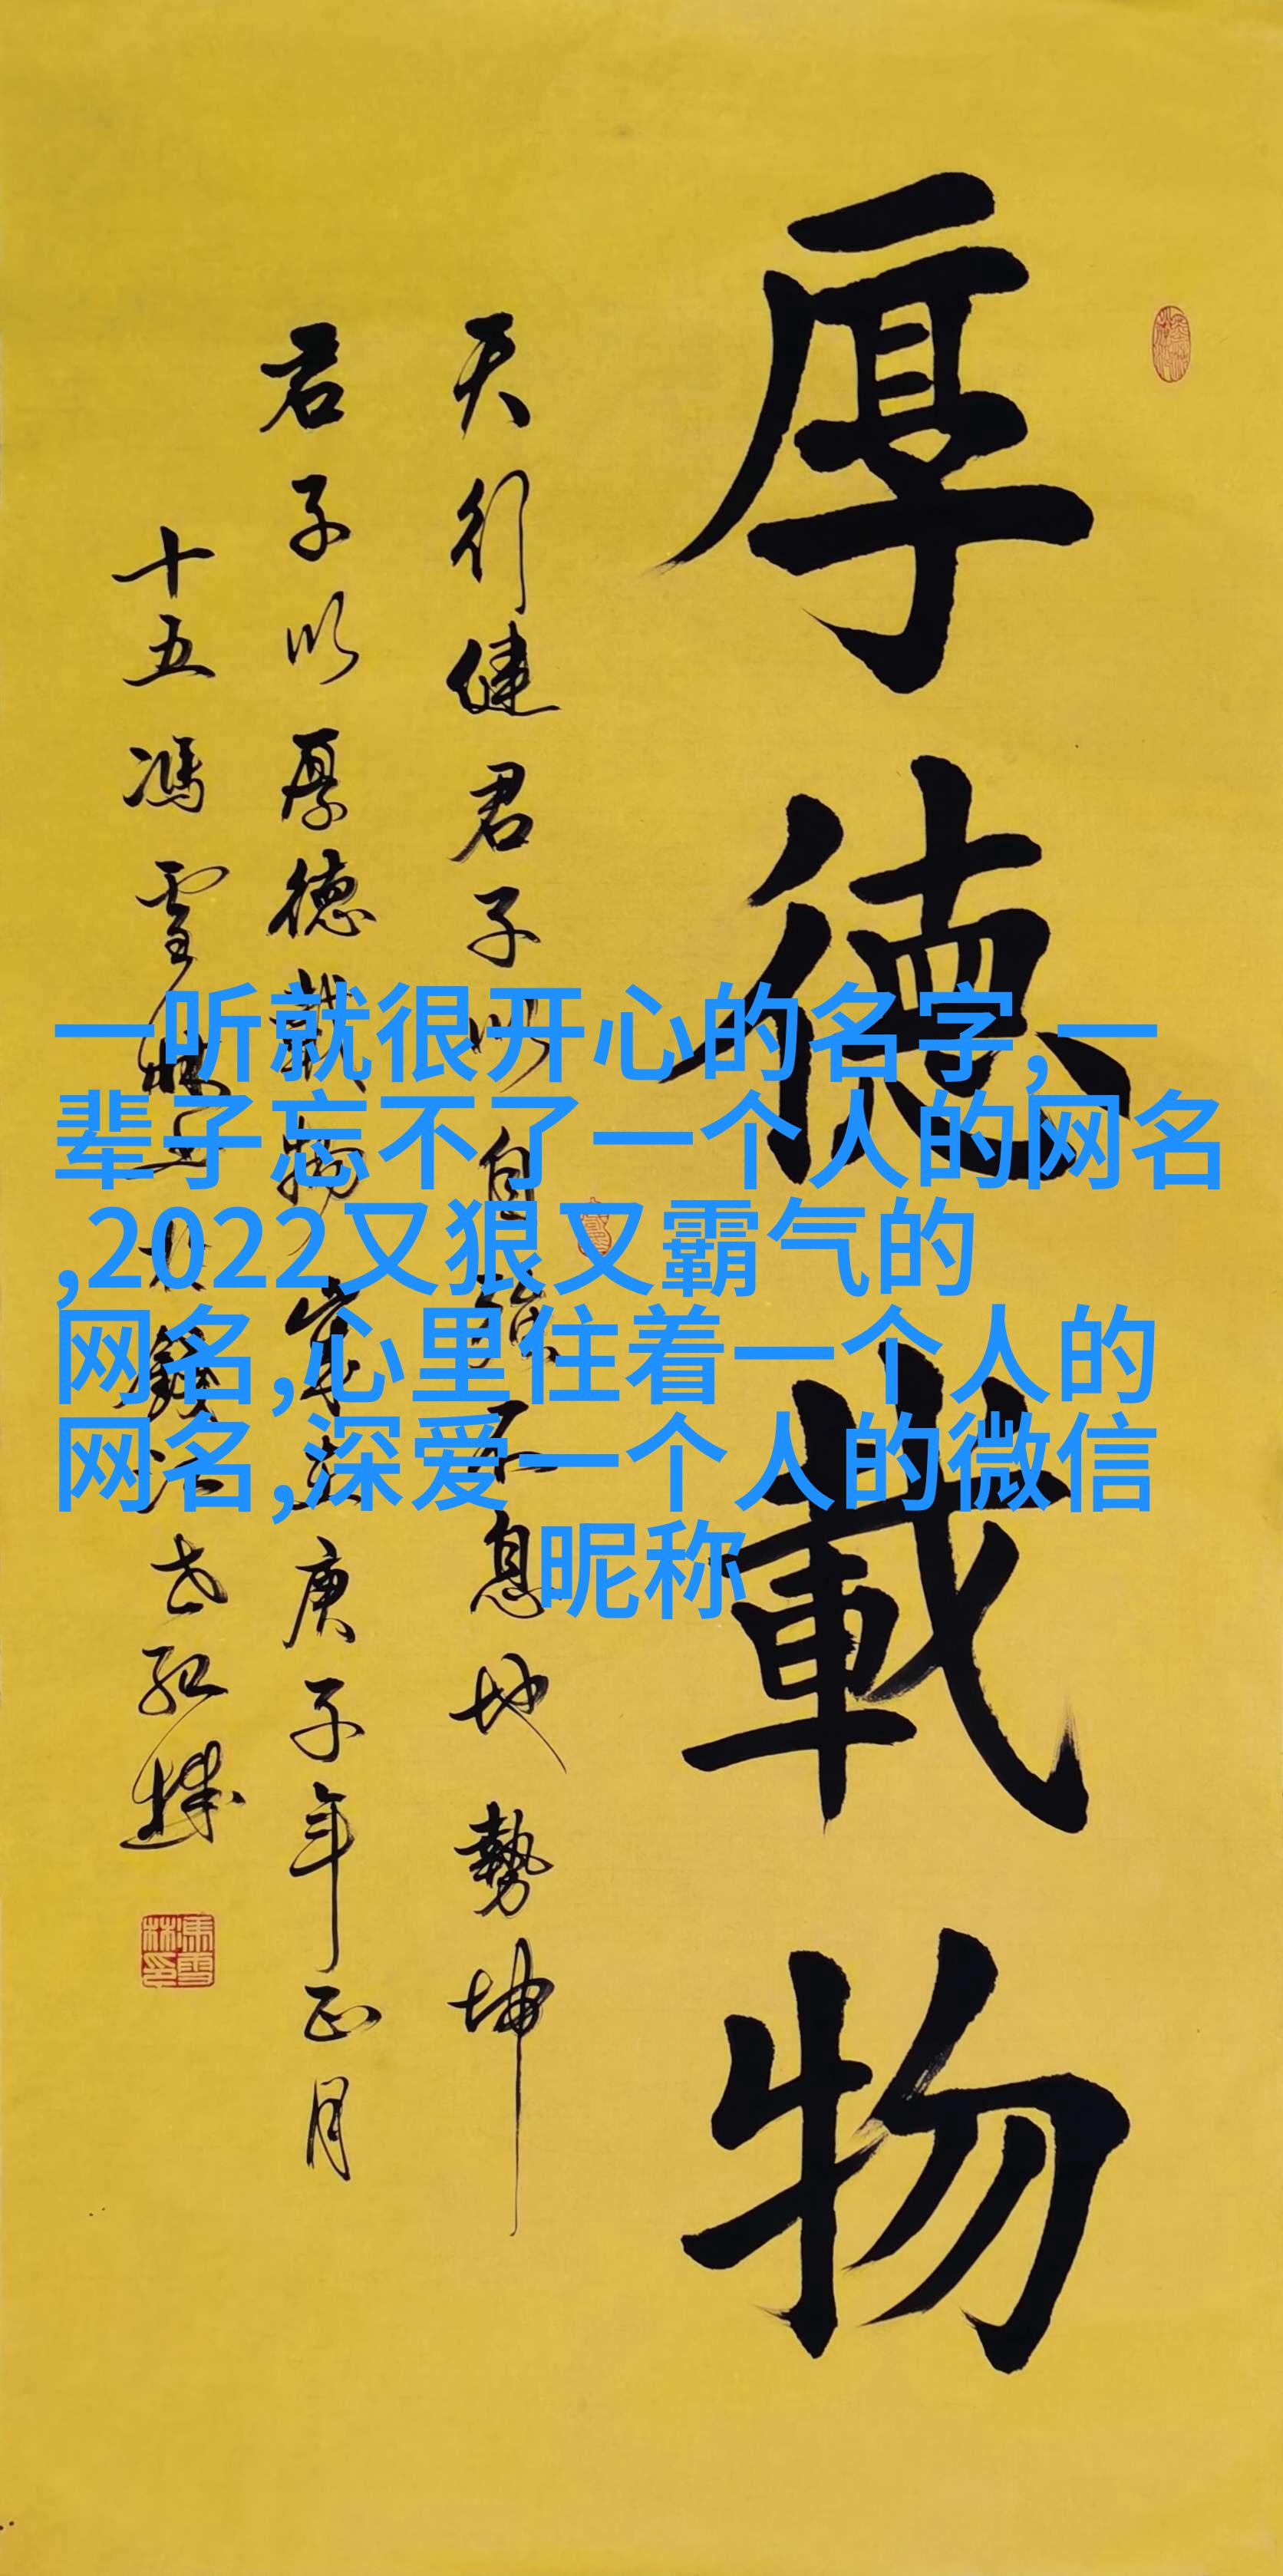 厚德載物
天行健君子以自強不息地勢坤
君子以厚德載物歲在庚子年正月
十五馮雪林
一听就很开心的名字,一
辈子忘不了一个人的网名
,2022又狠又霸气的
网名,心里住着一个人的
网名,深爱一个人的微信
昵称
馮雪林印